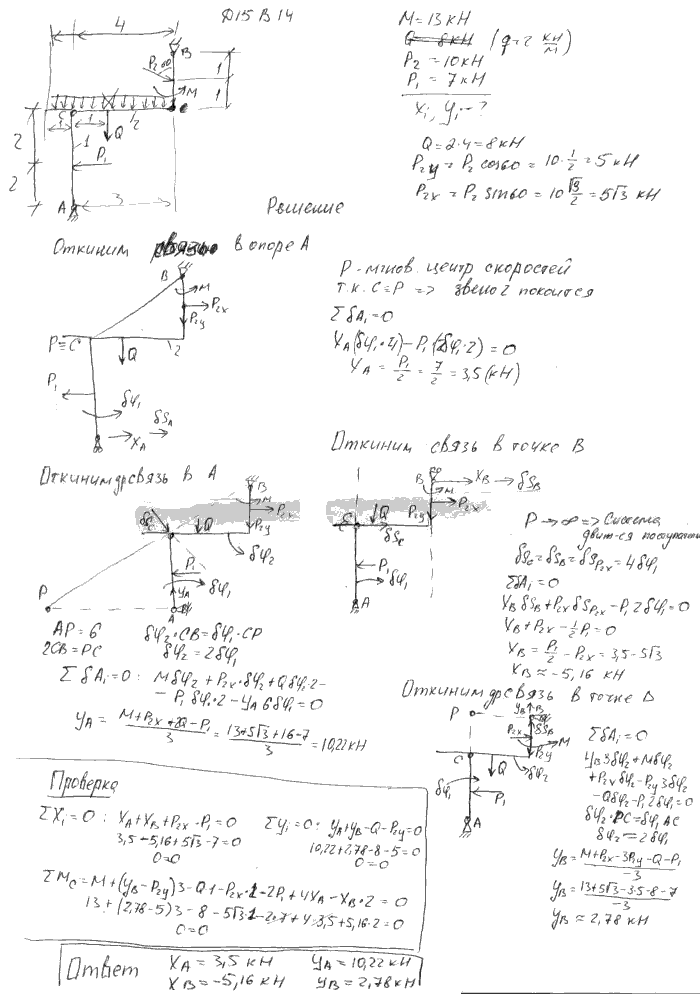 Д15 В 14
4
B
P₂ 60
M
1
1
C
1
1
2
Q
1
2
P₁
2
A
3
M = 13 кН
Q = 8 кН (q = 2 кН/м)
P₂ = 10 кН
P₁ = 7 кН
Xᵢ, Yᵢ - ?
Q = 2·4 = 8 кН
P₂y = P₂ cos60 = 10·1/2 = 5 кН
P₂x = P₂ sin60 = 10 √3/2 = 5√3 кН
Решение
Откиним связь в опоре A
B
M
P₂x
P₂y
P≡C
Q
2
P₁
δφ₁
δS_A
X_A
P - мгнов. центр скоростей
т.к. C=P => звено 2 покоится
ΣδAᵢ=0
X_A(δφ₁·4) - P₁(δφ₁·2) = 0
X_A = P₁/2 = 7/2 = 3,5 (кН)
Откиним связь в точке B
B
M
X_B
δS_B
P₂x
P₂y
C
Q
δS_C
P₁
δφ₁
A
P → ∞ => Система
движ-ся поступат
δS_C = δS_B = δS_P₂x = 4δφ₁
ΣδAᵢ=0
X_B δS_B + P₂x δS_P₂x - P₁ 2δφ₁ = 0
X_B + P₂x - 1/2 P₁ = 0
X_B = P₁/2 - P₂x = 3,5 - 5√3
X_B ≈ -5,16 кН
Откиним др связь в A
B
M
P₂x
P₂y
δS_C
Q
δφ₂
P₁
δφ₁
Y_A
A
P
AP = 6
2CB = PC
δφ₂·CB = δφ₁·CP
δφ₂ = 2δφ₁
ΣδAᵢ=0: Mδφ₂ + P₂x·δφ₂ + Qδφ₂·2 -
- P₁δφ₁·2 - Y_A 6δφ₁ = 0
Y_A = (M + P₂x + 2Q - P₁)/3 = (13 + 5√3 + 16 - 7)/3 = 10,22 кН
Откиним др связь в точке
P
Y_B
B
δS_B
P₂x
M
P₂y
C
Q
δφ₂
δφ₁
P₁
A
ΣδAᵢ=0
Y_B 3δφ₂ + Mδφ₂
+ P₂x δφ₂ - P₂y 3δφ₂
- Qδφ₂ - P₁ 2δφ₁ = 0
δφ₂·PC = δφ₁ AC
δφ₂ = 2δφ₁
Y_B = (M + P₂x - 3P₂y - Q - P₁)/-3
Y_B = (13 + 5√3 - 3·5 - 8 - 7)/-3
Y_B ≈ 2,78 кН
Проверка
ΣXᵢ=0: X_A + X_B + P₂x - P₁ = 0
3,5 - 5,16 + 5√3 - 7 = 0
0=0
ΣYᵢ=0: Y_A + Y_B - Q - P₂y = 0
10,22 + 2,78 - 8 - 5 = 0
0=0
ΣM_C = M + (Y_B - P₂y)3 - Q·1 - P₂x·1 - 2P₁ + 4X_A - X_B·2 = 0
13 + (2,78 - 5)3 - 8 - 5√3·1 - 2·7 + 4·3,5 + 5,16·2 = 0
0=0
Ответ X_A = 3,5 кН Y_A = 10,22 кН
X_B = -5,16 кН Y_B = 2,78 кН